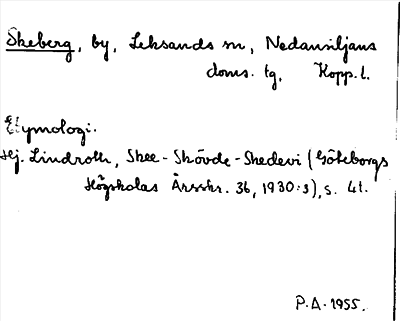 Skeberg, by, Leksands sn, Nedansiljans
doms. tg, Kopp. l.
Etymologi.
Hj. Lindroth, Skee-Skövde-Skedevi (Göteborgs
Högskolas Årsskr. 36, 1930:3), s. 41.
P.A. 1955.